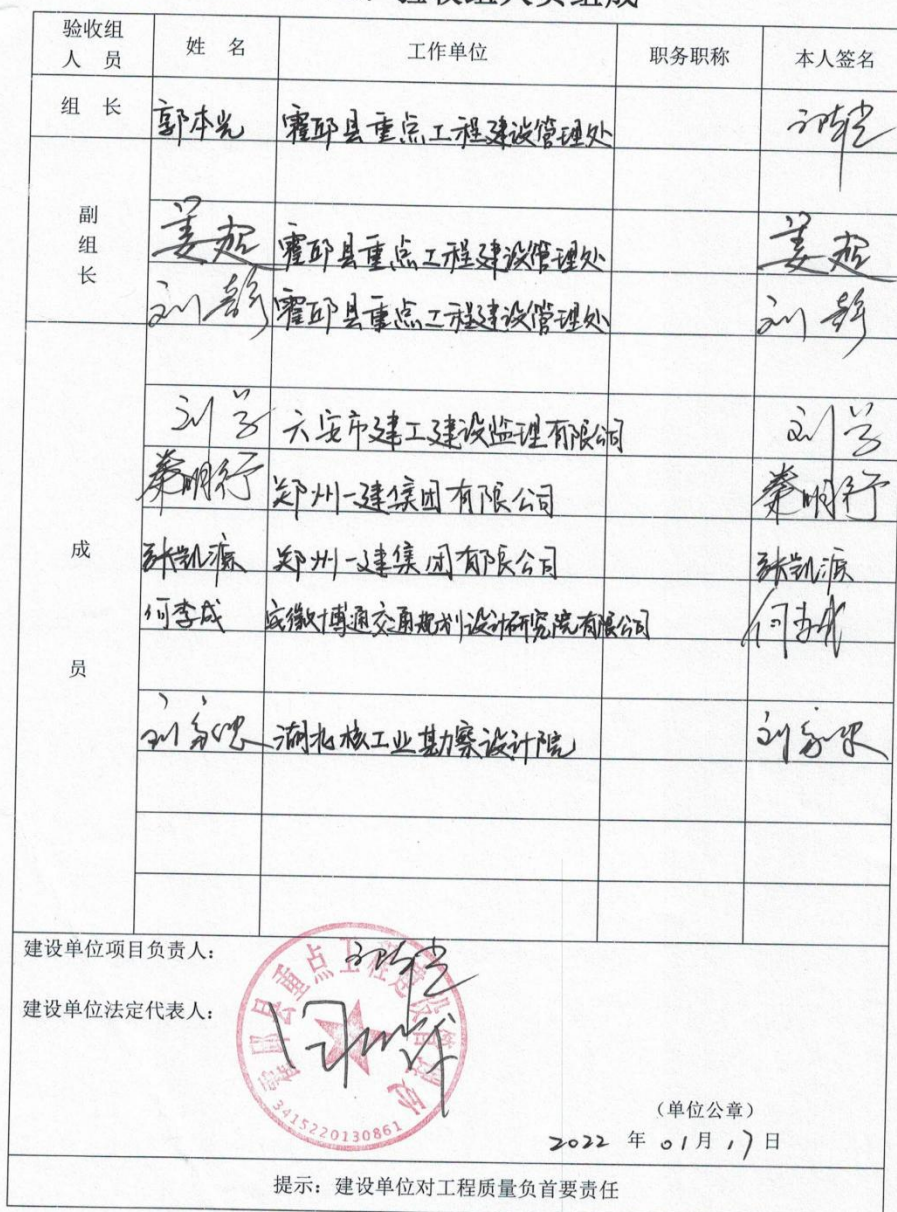 验收组人员组成
验收组人员 姓 名 工作单位 职务职称 本人签名
组 长 郭本光 霍邱县重点工程建设管理处
副组长
姜超 霍邱县重点工程建设管理处 姜超
刘彭 霍邱县重点工程建设管理处 刘彭
成员
刘学 六安市建工建设监理有限公司 刘学
明行 郑州一建集团有限公司 明行
张凯源 郑州一建集团有限公司 张凯源
何李成 安徽博通交通规划设计研究院有限公司 何李成
刘 湖北核工业勘察设计院 刘
建设单位项目负责人:
建设单位法定代表人:
霍邱县重点工程建设管理处
3415220130861
(单位公章)
2022 年 01月 17 日
提示:建设单位对工程质量负首要责任